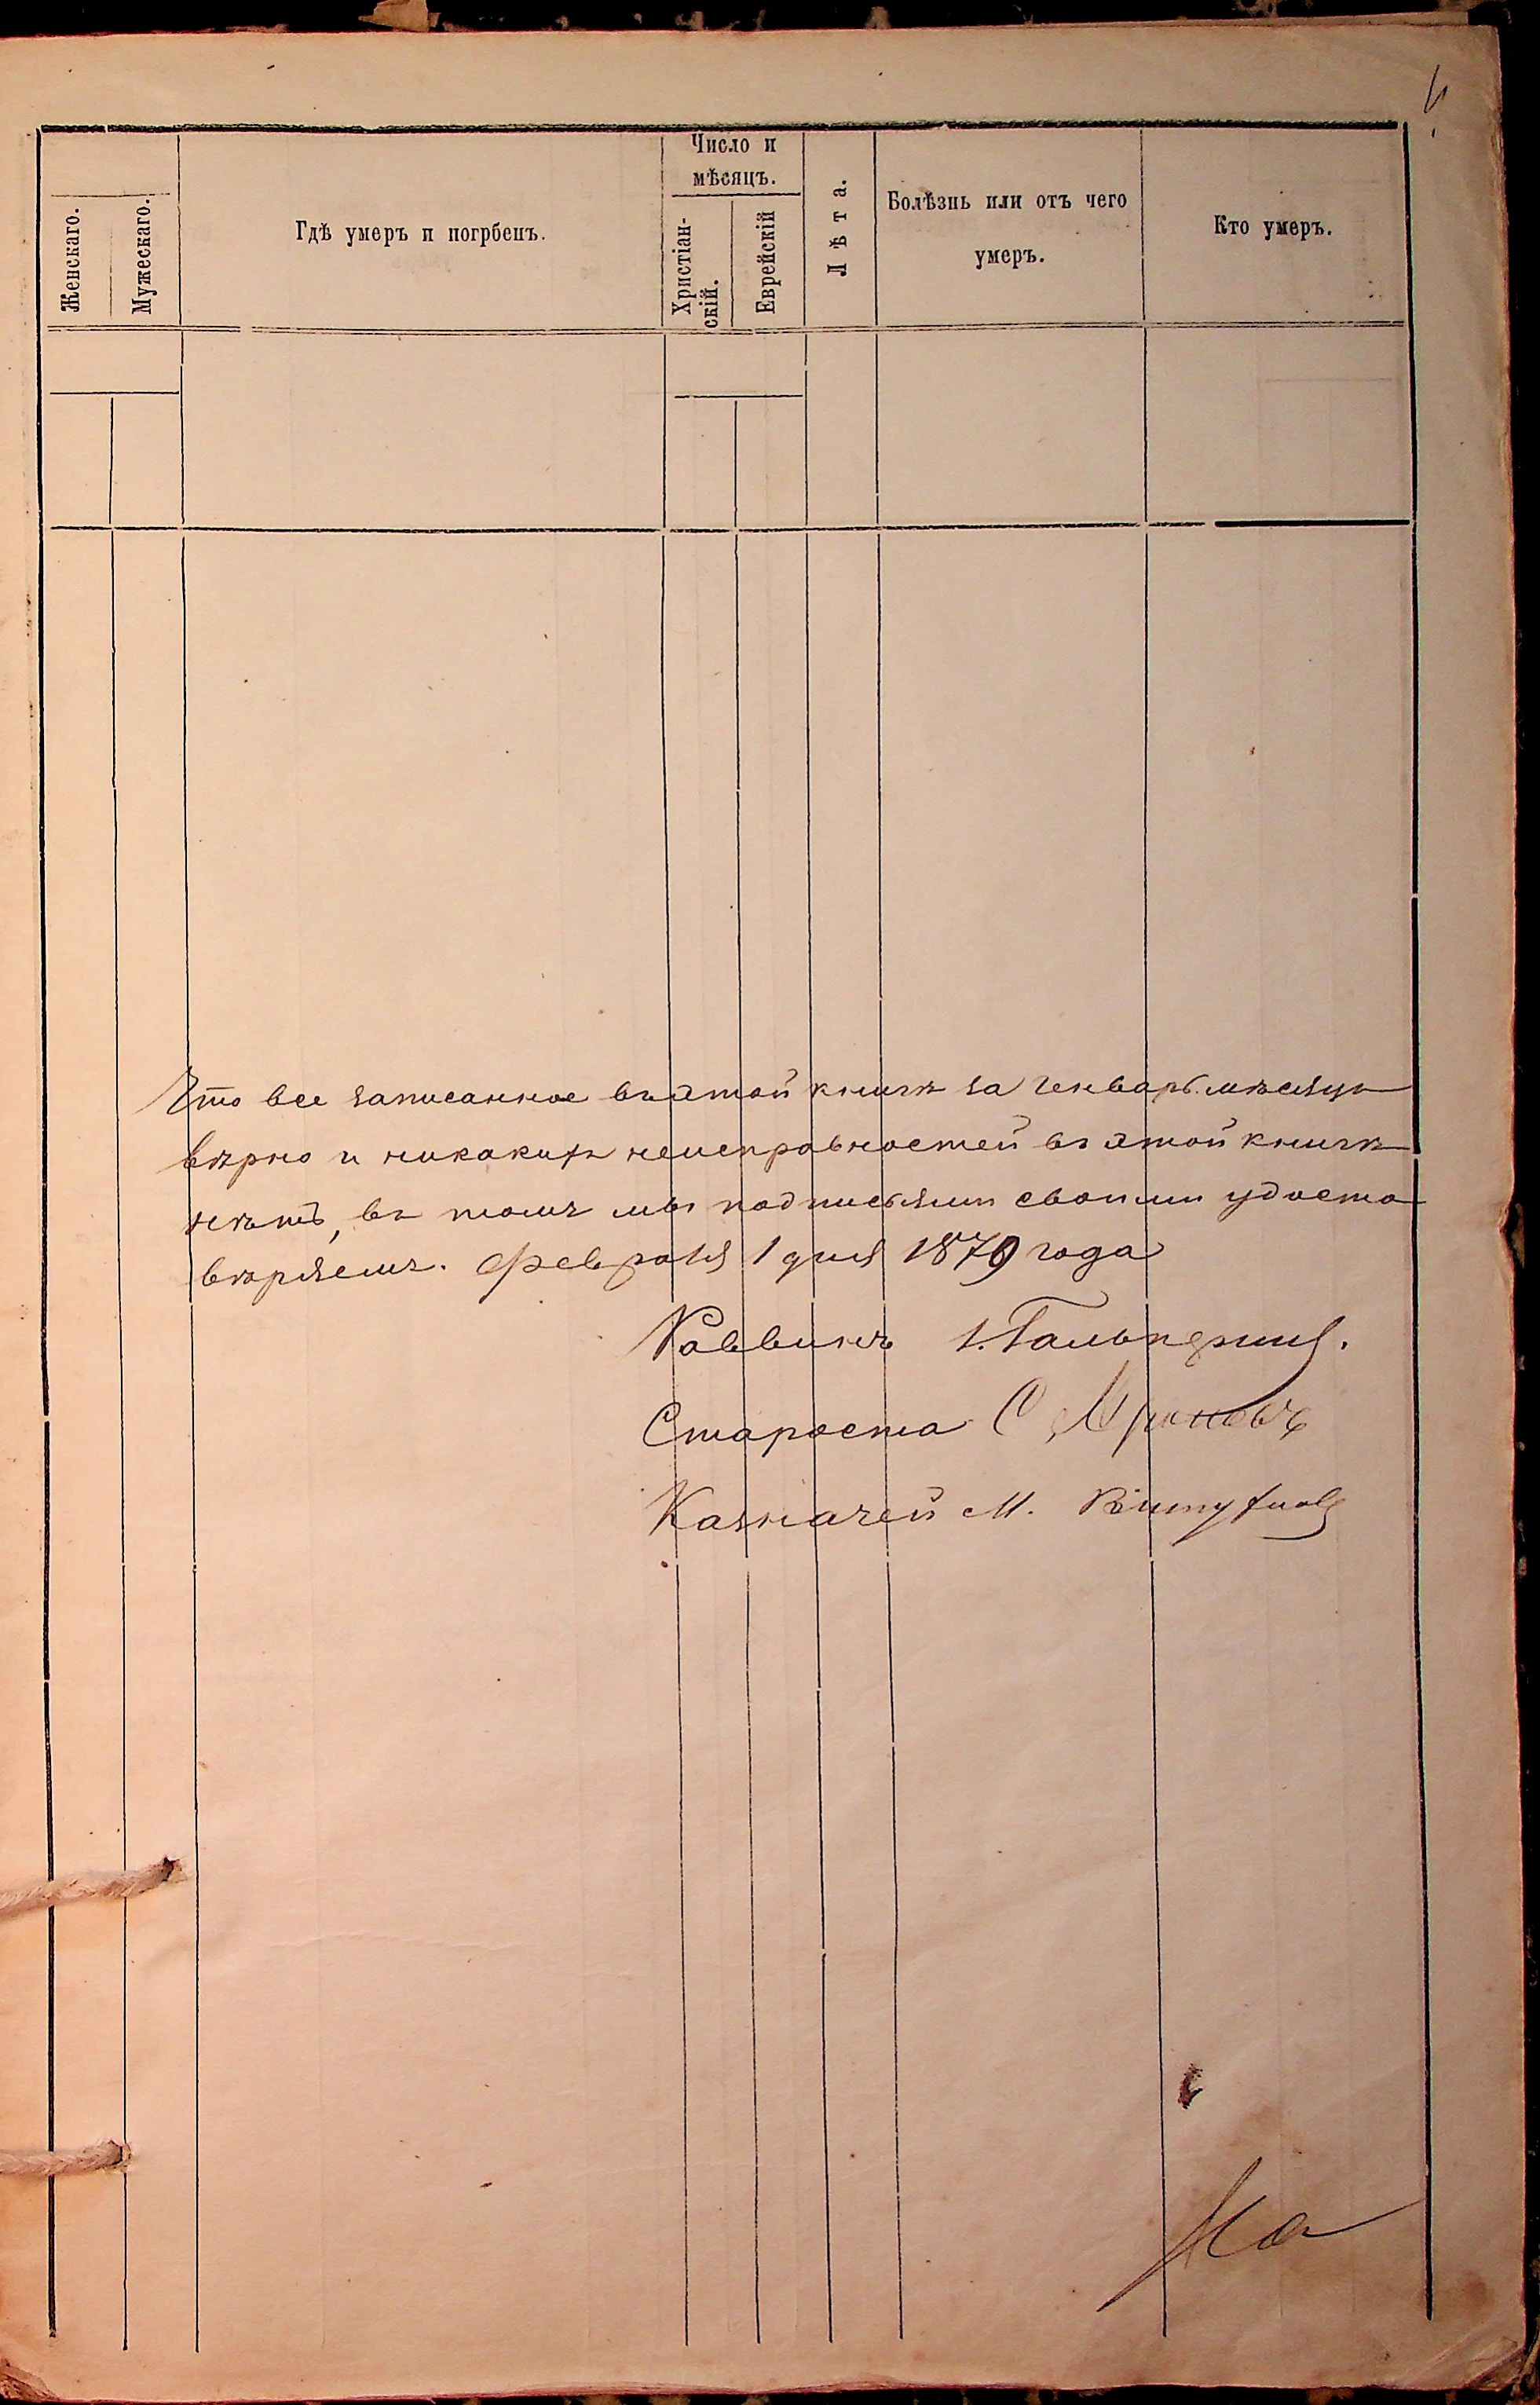 Женскаго.
Мужескаго.
Гдѣ умеръ и погрбенъ.
Число и
мѣсяцъ.
Христіан-
скій.
Еврейскій
Лѣта.
Болѣзнь или отъ чего
умеръ.
Кто умеръ.
Что все записанное въ этой книгѣ за Генварь мѣсяцъ
вѣрно и никакихъ неисправностей въ этой книгѣ
нѣтъ, въ томъ мы подписьями своими удосто
вѣряемъ. Февраля 1 дня 1879 года
Раввинъ І. Гальперинъ.
Староста С
Казначей М.